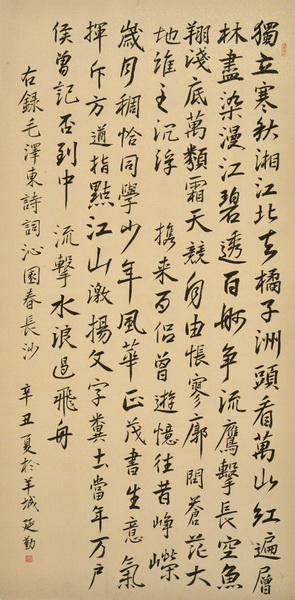 獨立寒秋湘江北去橘子洲頭看萬山紅遍層
林盡染漫江碧透百舸争流鷹擊長空魚
翔淺底萬類霜天競自由悵寥廓問蒼茫大
地誰主沉浮 携来百侣曾遊憶往昔崢嶸
歲月稠恰同學少年風華正茂書生意氣
揮斥方遒指點江山激揚文字糞土當年万户
侯曾記否到中 流擊水浪遏飛舟
右録毛澤東詩詞沁園春長沙 辛丑夏於羊城延勤